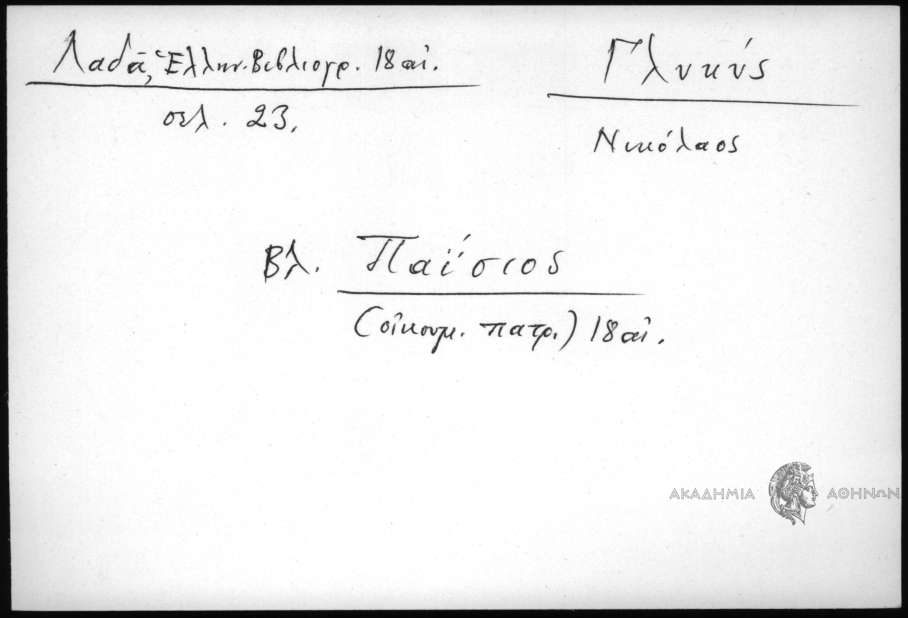 Λαδᾶ, Ἑλλην. Βιβλιογρ. 18 αἰ.
σελ. 23.
Γλυκύς
Νικόλαος
Βλ. Παΐσιος
(οἰκουμ. πατρ.) 18 αἰ.
ΑΚΑΔΗΜΙΑ ΑΘΗΝΩΝ